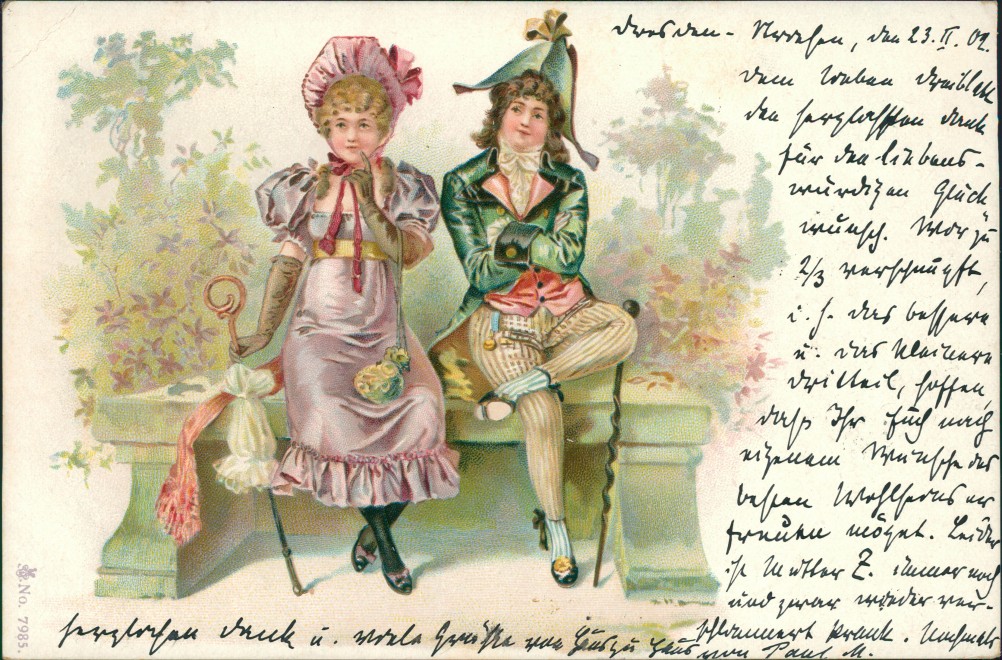 Dresden - Strehlen, den 23.II.02.
Dem lieben Dreiblatt
den herzlichsten Dank
für den liebens-
würdigen Glück
wunsch. Wir zu
2/3 verschnupft,
i. h. das bessere
u. das kleinere
Dritteil, hoffen,
daß Ihr Euch nach
eigenem Wunsche des
besten Wohlseins er
freuen möget. Leider
ist Mutter Z. immer noch
und zwar wieder ver-
schlimmert krank. Nochmals
herzlichen Dank u. viele Grüße von Haus zu Haus
von Paul M.
No. 7985.